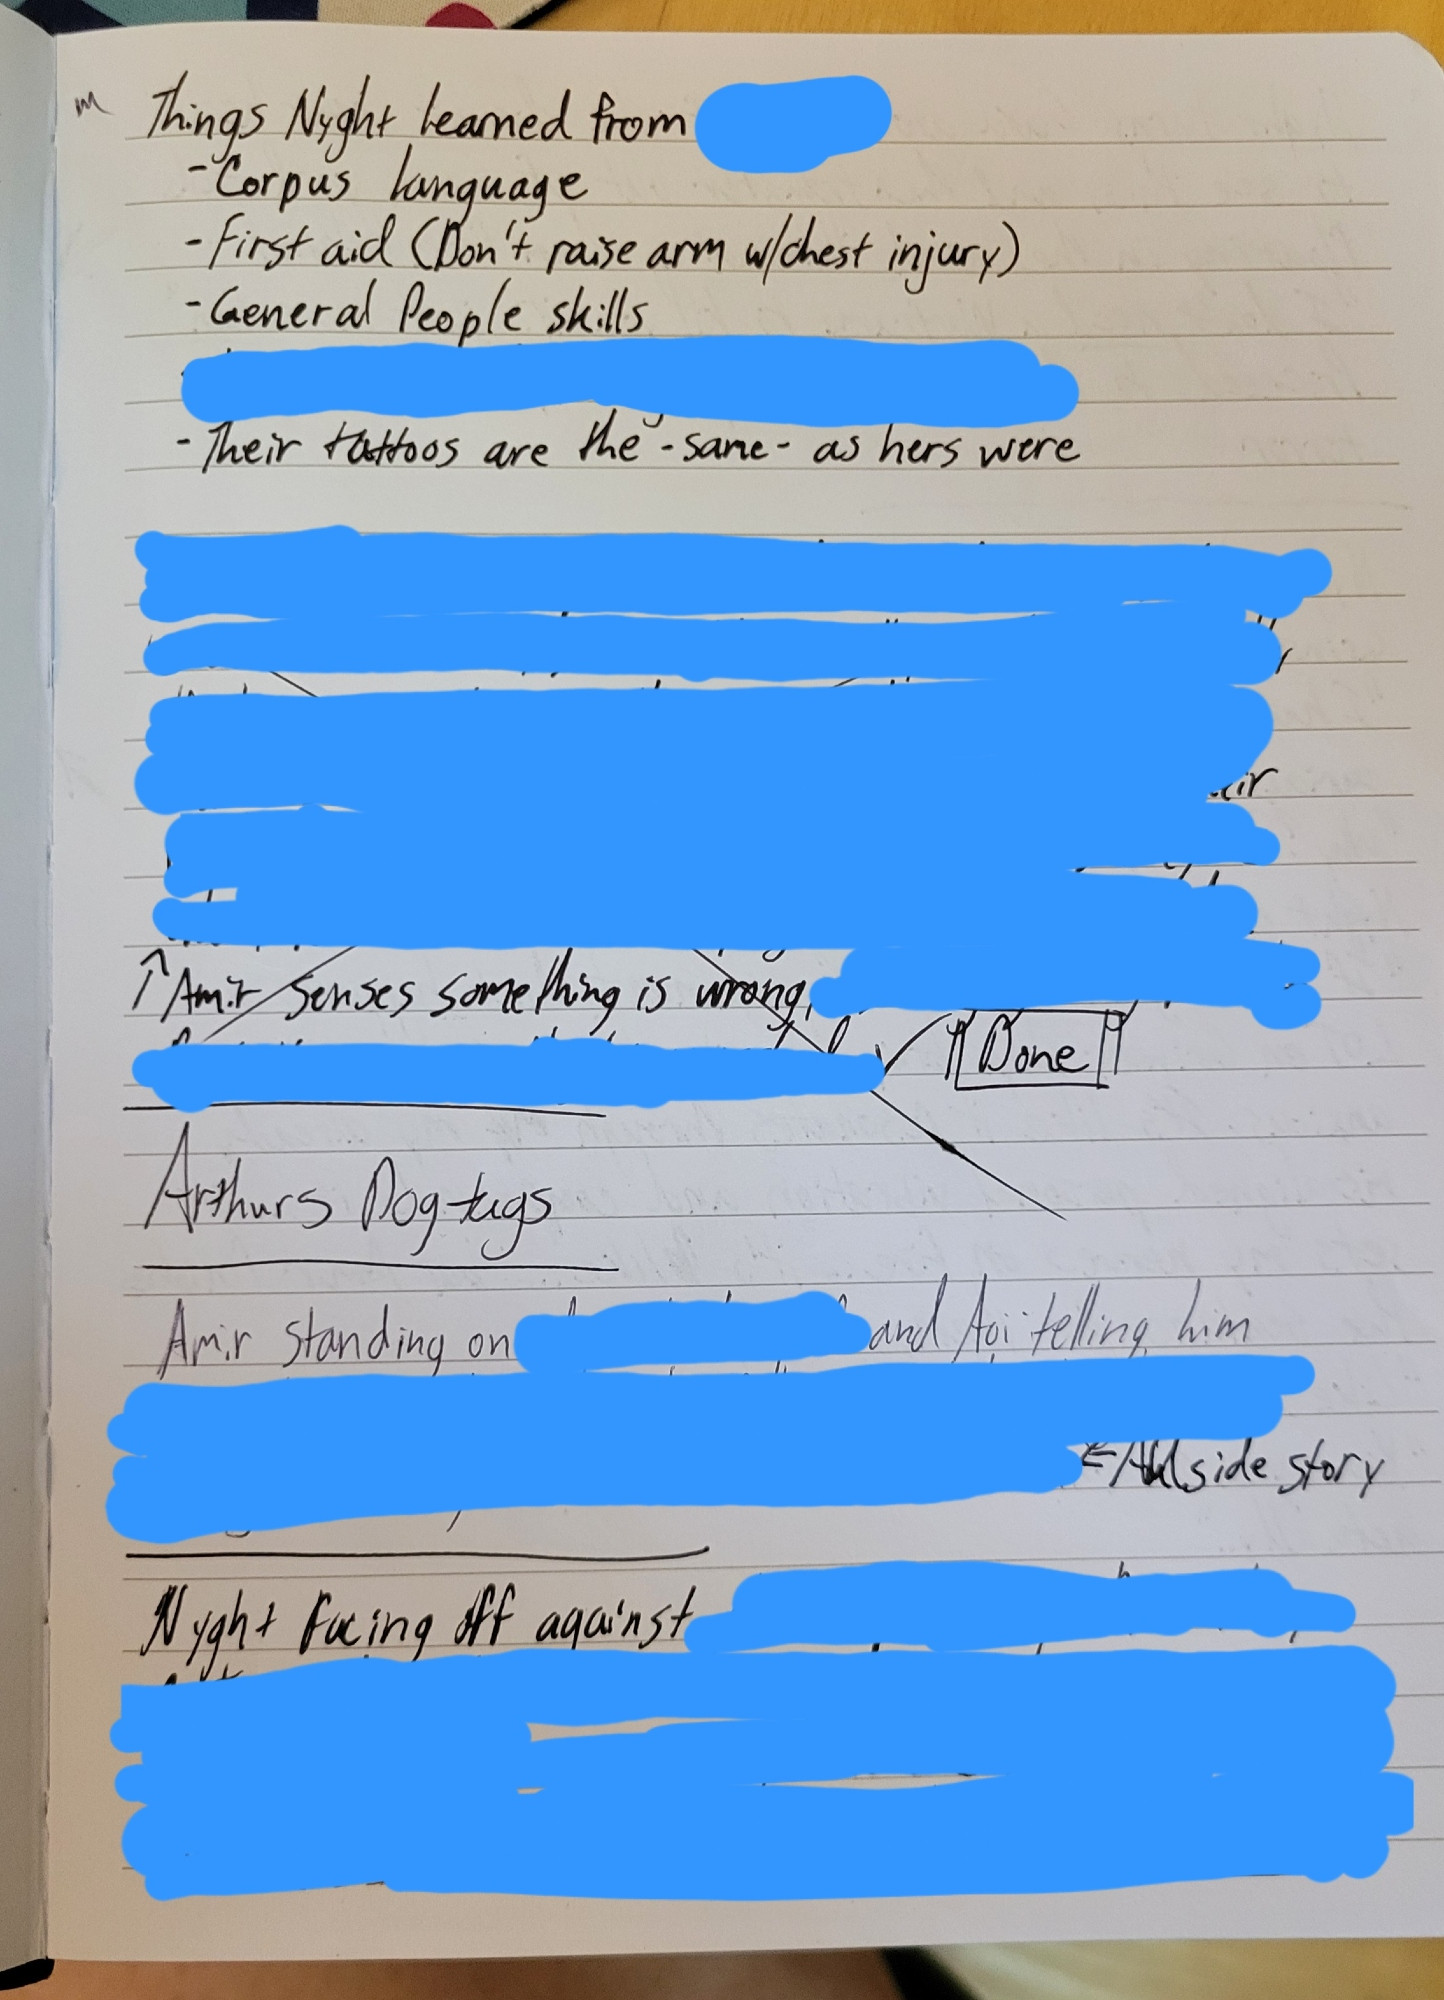 m Things Nyght learned from
-Corpus language
-First aid (Don't raise arm w/chest injury)
-General People skills
-Their tattoos are the -same- as hers were
↑Amir senses something is wrong,
Done
Arthurs Dog-tags
Amir standing on and Aoi telling him
side story
Nyght facing off against